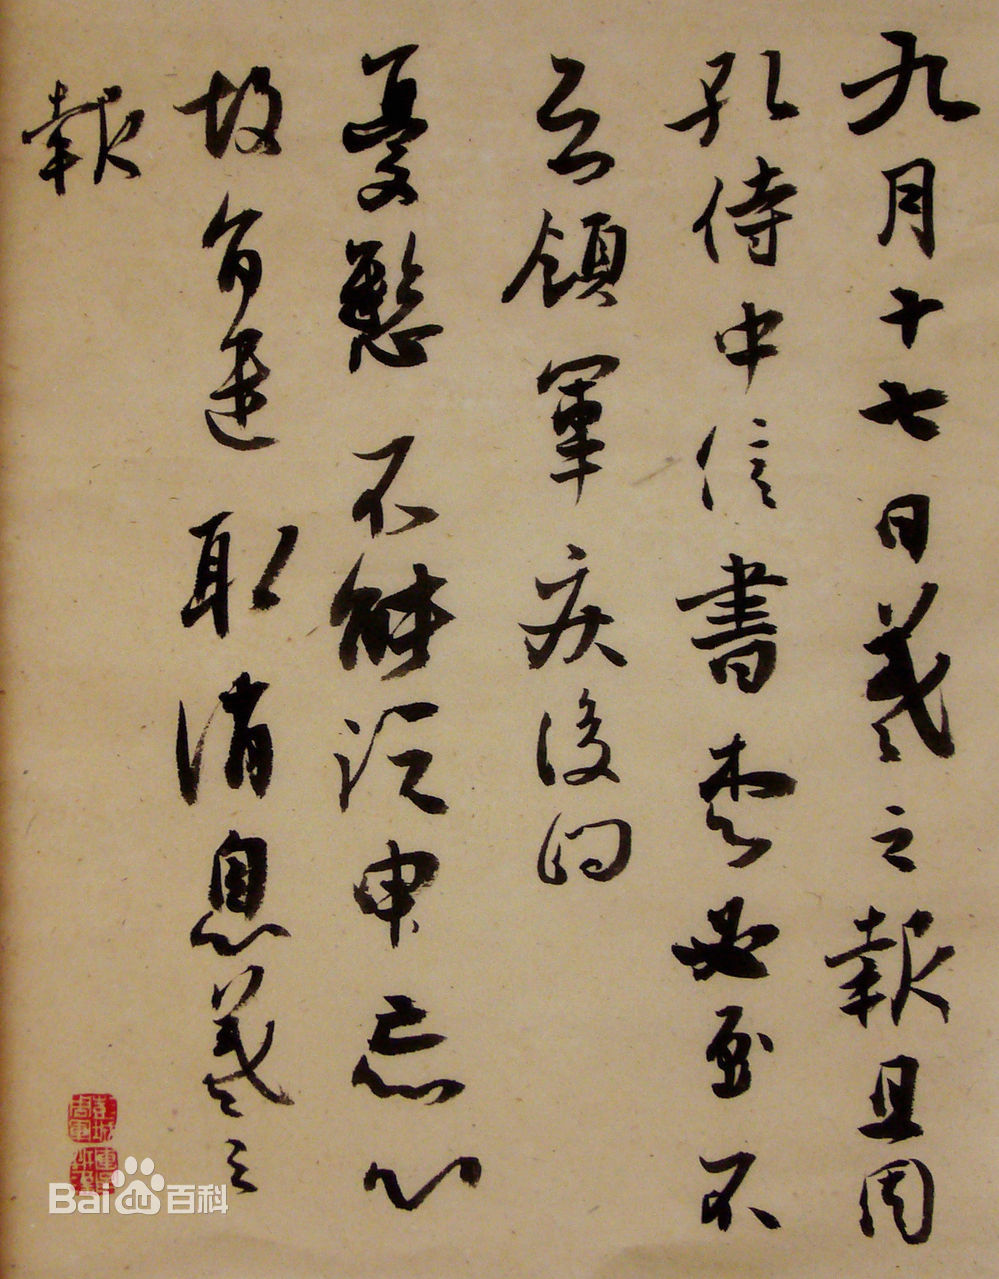 九月十七日羲之報且因
孔侍中信書想必至不
知領軍疾後問
憂懸不能須臾忘心
故旨遣取消息羲之
報
Bai du 百科